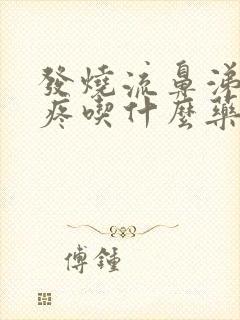 發燒流鼻涕
疼喫什麼藥
傅鍾